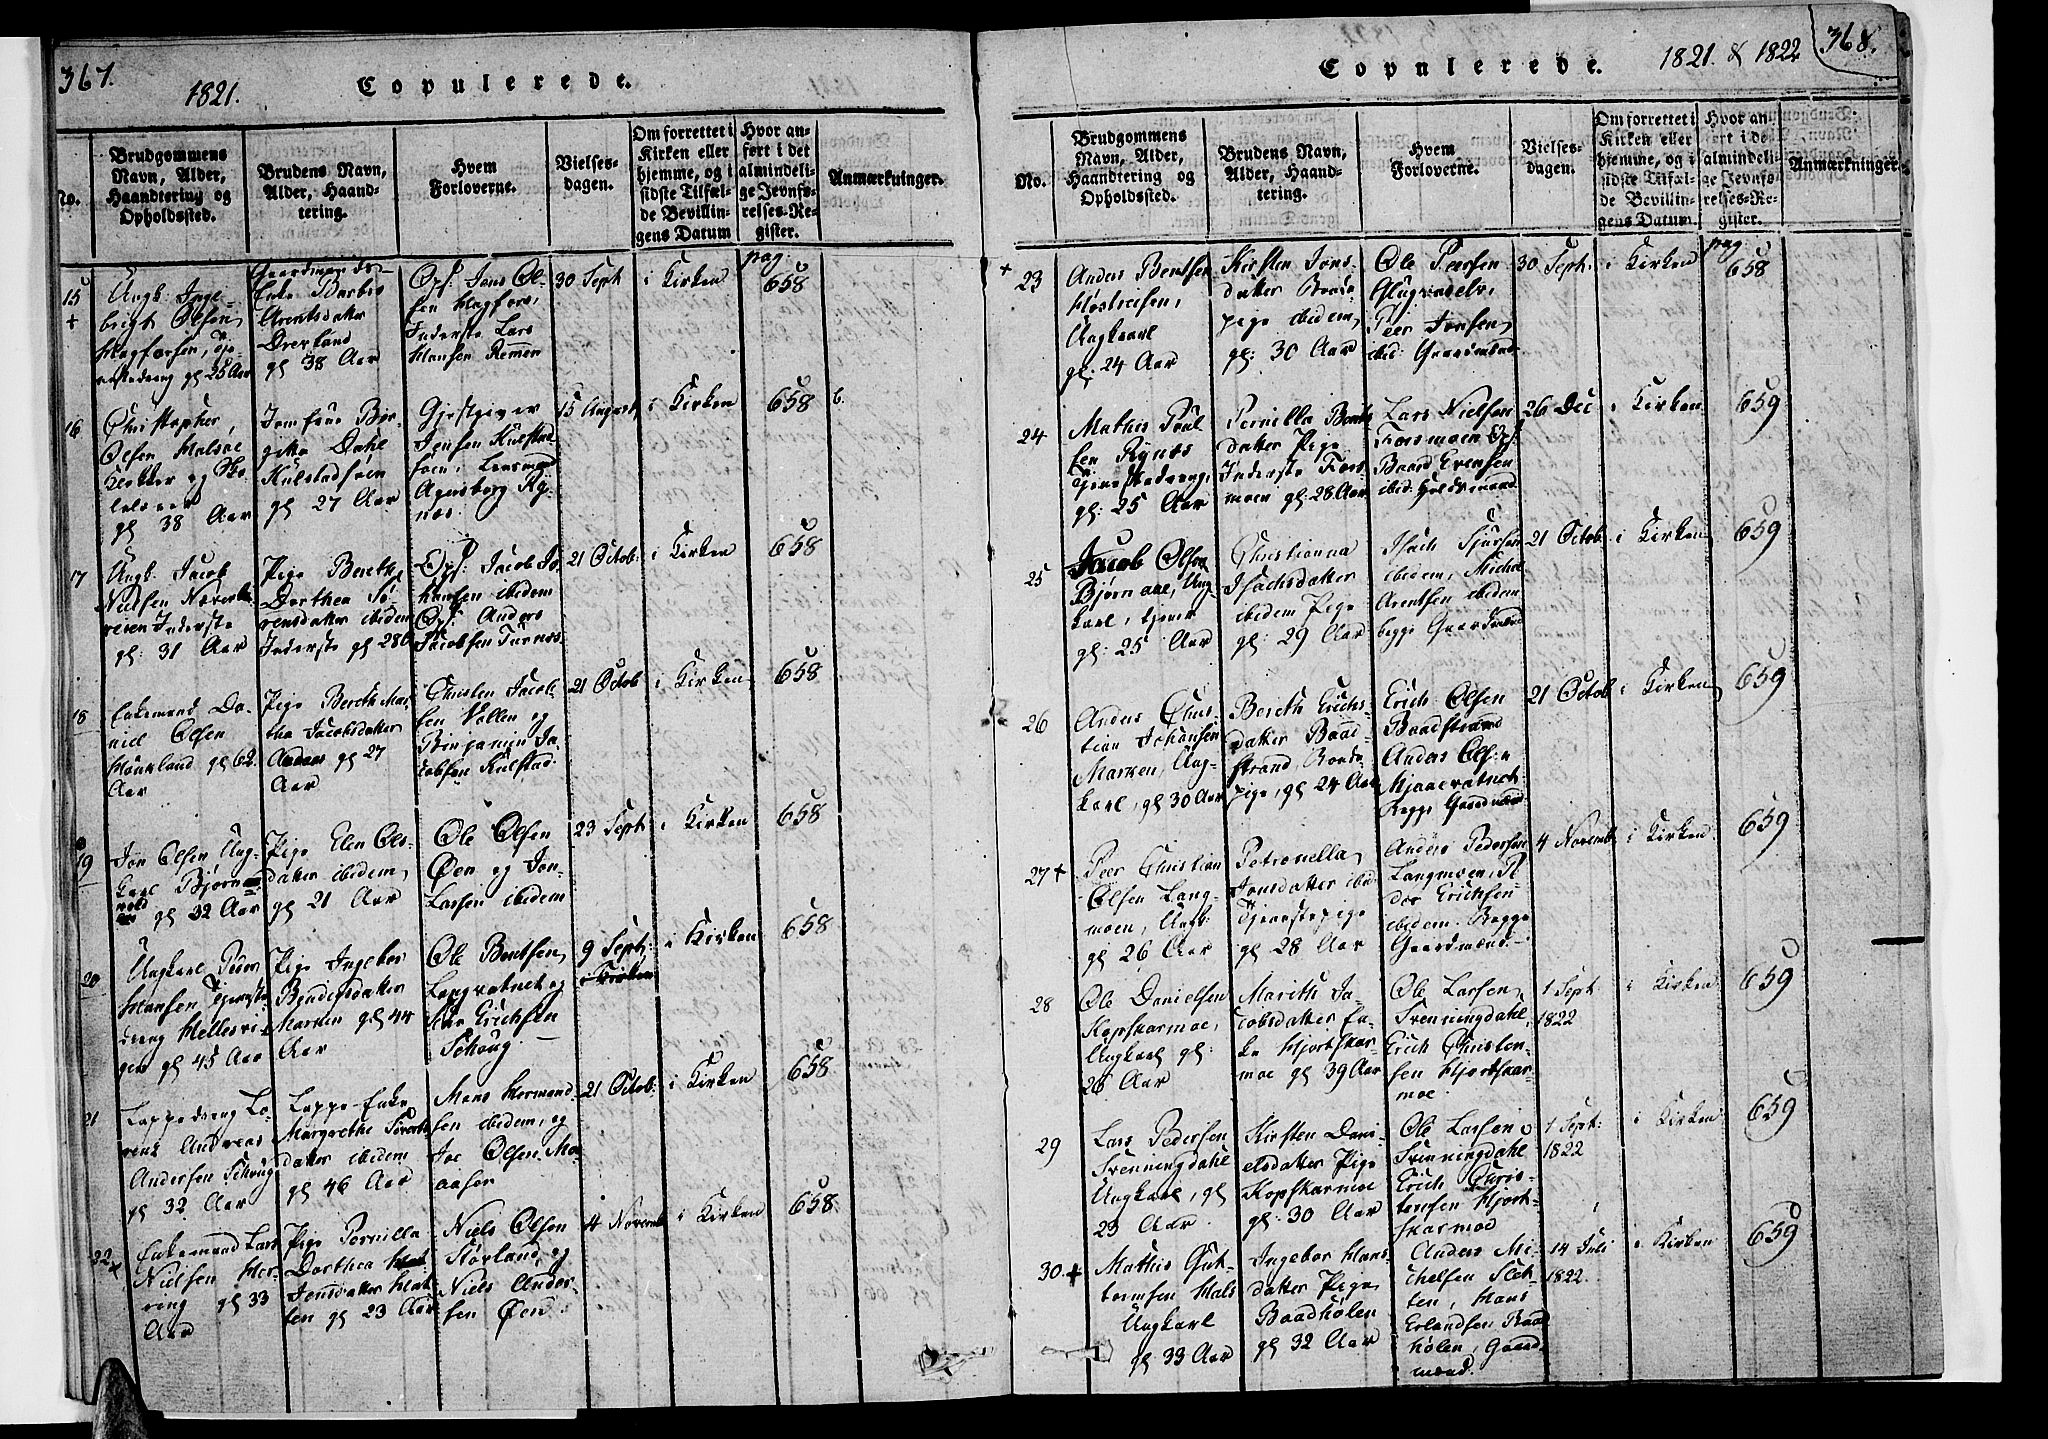 367.
1821.
Copulerede.
No.
Brudgommens
Navn, Alder,
Haandtering og
Opholdssted.
Brudens Navn,
Alder, Haand-
tering.
Hvem
Forloverne.
Vielses-
dagen.
Om forrettet i
Kirken eller
hjemme, og i
sidste Tilfæl-
de Bevillin-
gens Datum
Hvor an-
ført i det
almindeli-
ge Jevnfø-
relses-Re-
gister.
Anmærkninger.
pag:
15
+
Ungk. Inge-
brigt Olsen
Hagforsen,
gl 25 Aar
Gaardmands
Enke Barbro
Arentsdatter
Drevland
gl 38 Aar
Ops. Jens Ol-
sen Hagfors,
Inderste Lars
Hansen Remen
30 Sept
i Kirken
658
16
Christopher
Olsen
Klokker og Sko-
lelærer
gl 38 Aar
Jomfrue Bir-
gitta Dahl
Kulstadsøen
gl 27 Aar
Gjestgiver
Jensen Kulstad
søen, Lensmand
Agersborg Ry-
næs.
15 August
i Kirken
658
6.
17
Ungk. Jacob
Nielsen
Inderste
gl: 31 Aar
Pige Bereth
Dorthea Sø-
rensdatter ibidem
Inderste gl 28
Ops: Jacob Jo-
hansen ibidem
Ops. Anders
Jacobsen Turmoe
21 Octob:
i Kirken
658
18
Enkemand Da-
niel Olsen
gl 62
Aar
Pige Bereth Mar-
tha Jacobsdatter
gl 27
Aar
Christen Jacob-
sen Vollen og
Benjamin Ja-
cobsen Kulstad.
21 Octob
i Kirken
658
19
Jon Olsen Ung-
karl Bjørn
gl 32 Aar
Pige Elen Ols-
datter ibidem
gl 21 Aar
Ole Olsen
Øen og Jon
Larsen ibidem
23 Sept
i Kirken
658
20
Ungkarl Peder
Hansen Tjeneste
dreng Hellesvi-
gen gl 45 Aar
Pige Ingebor
Bendersdatter
Marken gl 44
Aar
Ole Bentsen
Langvatnet og
Erichsen
Schoug.
9 Sept:
i Kirken
658
21
Lappedreng Lo-
rens Andreas
Andersen Schoug
gl 32 Aar
Lappe-Enke
Margrethe Siverts
datter ibidem
gl 46 Aar
Mons Hermand-
sen ibidem, og
Joe Olsen Mo-
aaser
21 Octob:
i Kirken
658
22
+
Enkemand Lars
Nielsen Her-
ring gl 33
Aar
Pige Pernilla
Dorthea
Jensdatter Hat-
ten gl 23 Aar
Niels Olsen
Størland, og
Niels Ander-
sen Øen
4 Novemb
i Kirken
658
368.
1821. & 1822
Copulerede.
No.
Brudgommens
Navn, Alder,
Haandtering og
Opholdssted.
Brudens Navn,
Alder, Haand-
tering.
Hvem
Forloverne.
Vielses-
dagen.
Om forrettet i
Kirken eller
hjemme, og i
sidste Tilfæl-
de Bevillin-
gens Datum.
Hvor an-
ført i de
almindeli-
ge Jevnfø-
relses-Re-
gister.
Anmærkninger
pag:
+
23
Anders Bentsen
Ungkarl
gl: 24 Aar
Kirsten Jons-
datter Bonde-
pige ibidem,
gl: 30 Aar
Ole Peersen
Glugvaselv,
Peer Jonsen
ibid: Gaardmænd
30 Sept:
i Kirken
658
24
Mathis Poul-
sen Rynes
Tjenestedreng,
gl: 25 Aar
Pernilla Bents
datter Pige
Inderste Fors-
moen gl: 28 Aar
Lars Nielsen
Forsmoen Ops.
Baard Evensen
ibid:
26 Dec
i Kirken
659
25
Jacob Olsen
Bjørnaae, Ung-
karl, tjener
gl: 25 Aar
Christianna
Isachsdatter
ibidem Pige
gl: 29 Aar
Isach Sjursen
ibidem, Michel
Arentsen ibidem
begge Gaardmænd
21 Octob
i Kirken
659
26
Anders Chris-
tian Johansen
Marken, Ung-
karl, gl 30 Aar
Bereth Erichs-
datter Baad-
strand Bonde-
pige, gl 24 Aar
Erich Olsen
Baadstrand
Anders Olsen
Mjaavatnet
Begge Gaardmænd
21 Octob
i Kirken
659
27 +
Peer Christian
Olsen Lang-
moen, Ungk.
gl 26 Aar
Petronella
Jonsdatter ibid.
Tjenestepige
gl 28 Aar
Anders Pedersen
Langmoen, P
der Erichsen
ibidem. Begge
Gaardmænd
4 Novemb
i Kirken
659
28
Ole Danielsen
Kopskarmoe,
Ungkarl gl:
26 Aar
Marith Ja-
cobsdatter En-
ke Hjortskar-
moe gl 39 Aar
Ole Larsen
Svenningdahl,
Erich Christen-
sen Hjortskar-
moe.
1 Sept
1822
i Kirken
659
29
Lars Pedersen
Svenningdahl
Ungkarl, gl
23 Aar.
Kirsten Dani-
elsdatter Pige
Kopskarmoe
gl: 30 Aar
Ole Larsen
Svenningdahl
Erich Chris-
tensen Hjort-
skarmoe
1 Sept:
1822
i Kirken
659
30. +
Mathis Gut-
tormsen Hals
Ungkarl
gl 33 Aar
Ingebor Hans-
datter Pige
Baadhølen
gl 32 Aar
Anders Mi-
chelsen Slet-
ten, Hans
Erlandsen Baad
hølen, Gaard-
mænd.
14 Juli
1822.
i Kirken
659